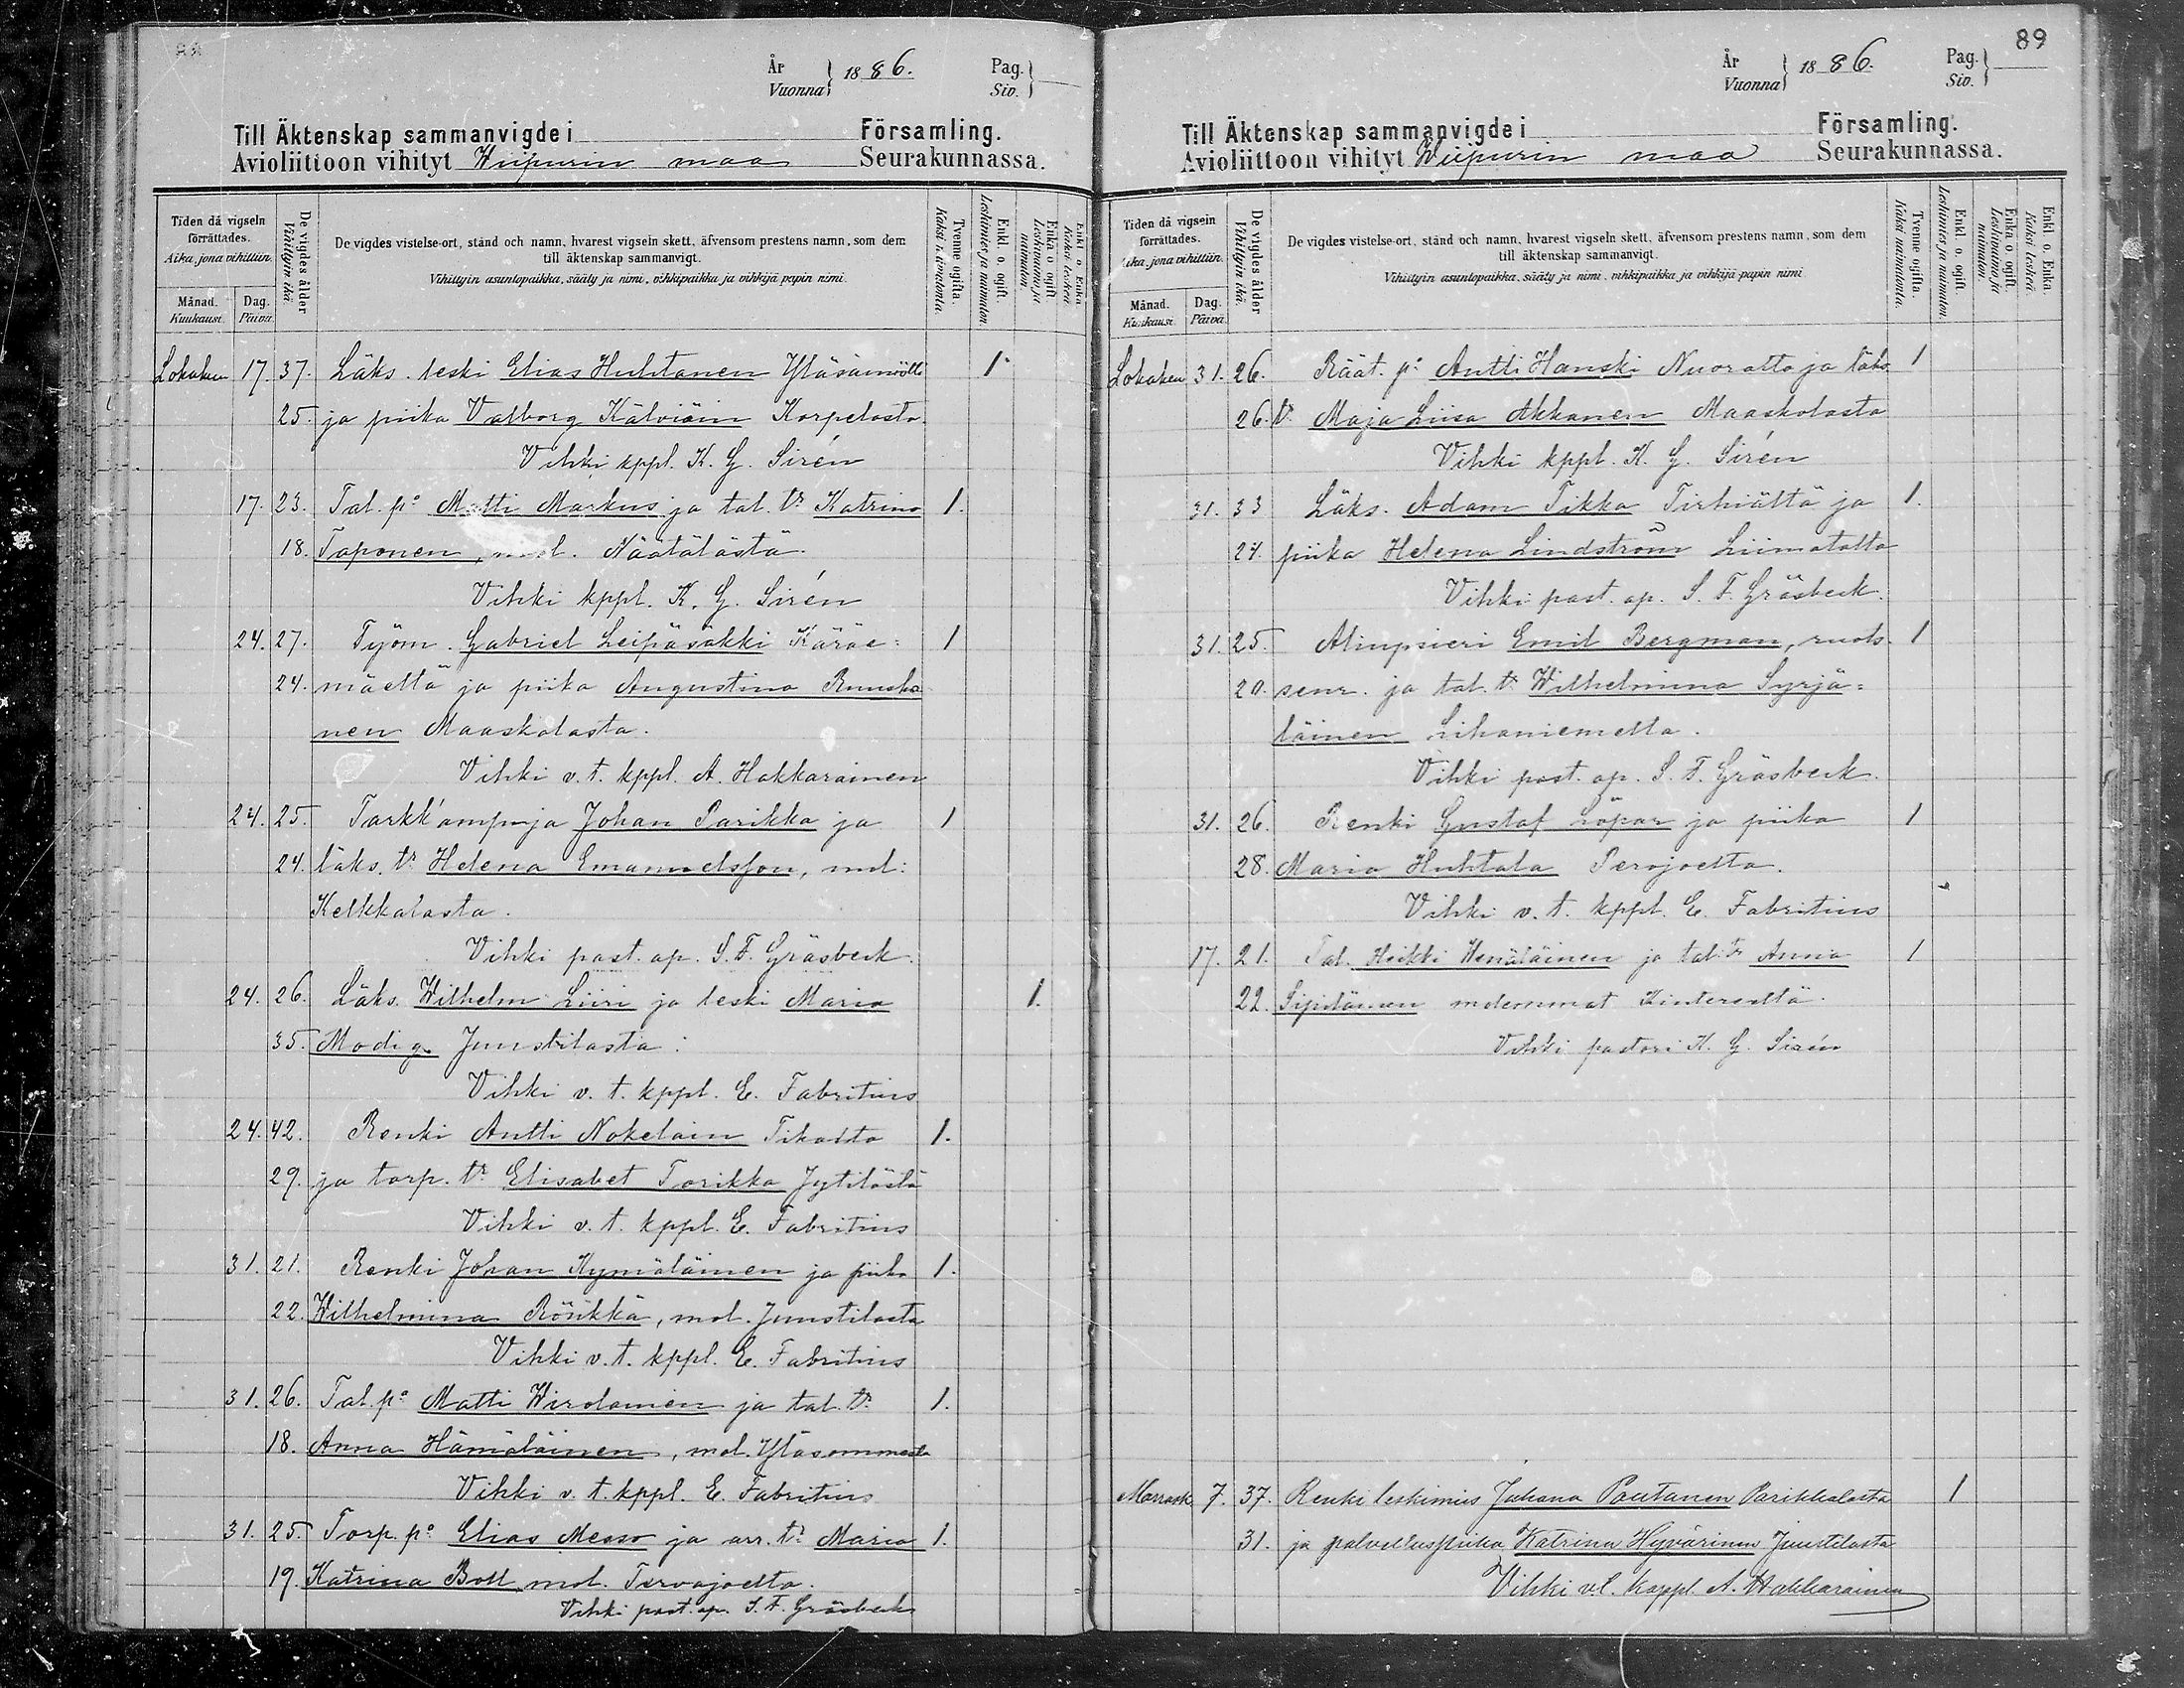 88
År
Vuonna
1886.
Pag.
Siv.
Till Äktenskap sammanvigde i Församling.
Avioliittoon vihityt Wiipurin maa Seurakunnassa.
Tiden då vigseln förrättades.
Aika, jona vihittiin.
Månad.
Kuukausi
Dag.
Päivä
De vigdes ålder
Vihittyin ikä.
De vigdes vistelse-ort, stånd och namn, hvarest vigseln skett, äfvensom prestens namn, som dem
till äktenskap sammanvigt.
Vihittyin asuntopaikka, sääty ja nimi, vihkipaikka ja vihkijä papin nimi.
Tvenne ogifta.
Kaksi naimatonta.
Enkl. o. ogift.
Leskimies ja naimaton.
Enka o. ogift
Leskivaimo ja naimaton
Enkl. o. Enka
Kaksi leskeä.
Lokakuu 17. 37. Läks. leski Elias Huhtanen 1
25. ja piika Valborg Kälviäin Korpelasta.
Vihki kppl. K. G. Sirén
17. 23. Tal. po Matti Markus ja tal. tr Katrina 1.
18. Taponen, mol. Näätälästä.
Vihki kppl. K. G. Sirén
24. 27. Työm. Gabriel Leipäsäkki Käräe- 1
24. mäeltä ja piika Augustina Ruuska
nen Maaskolasta.
Vihki v. t. kppl. A. Hakkarainen
24. 25. Tarkk'ampuja Johan Parikka ja 1
24. läks. tr Helena Emanuelsson, mol:
Kelkkalasta.
Vihki past. ap. S. F. Gräsbeck.
24. 26. Läks. Wilhelm Liiri ja leski Maria 1.
35. Modig. Juustilasta.
Vihki v. t. kppl. E. Fabritius
24. 42. Renki Antti Nokelain 1.
29. ja torp. tr Elisabet Torikka
Vihki v. t. kppl. E. Fabritius
31. 21. Renki Johan Kymäläinen ja piika 1.
22. Wilhelmina Rösikkä, mol. Juustilasta
Vihki v. t. kppl. E. Fabritius
31. 26. Tal. po Matti Wirolainen ja tal. tr 1.
18. Anna Hämäläinen, mol. Yläsommeelta
Vihki v. t. kppl. E. Fabritius
31. 25. Torp. po Elias Messo ja arr. tr Maria 1.
19. Katrina Boll mol. Tervajoelta.
Vihki past. ap. S. F. Gräsbeck
89
År
Vuonna
1886.
Pag.
Siv.
Till Äktenskap sammanvigde i Församling.
Avioliittoon vihityt Wiipurin maa Seurakunnassa.
Tiden då vigseln förrättades.
Aika, jona vihittiin.
Månad.
Kuukausi
Dag.
Päivä
De vigdes ålder
Vihittyin ikä.
De vigdes vistelse-ort, stånd och namn, hvarest vigseln skett, äfvensom prestens namn, som dem
till äktenskap sammanvigt.
Vihittyin asuntopaikka, sääty ja nimi, vihkipaikka ja vihkijä papin nimi
Tvenne ogifta.
Kaksi naimatonta.
Enkl. o. ogift.
Leskimies ja naimaton.
Enka o. ogift.
Leskivaimo ja naimaton.
Enkl. o. Enka.
Kaksi leskeä.
Lokakuu 31. 26. Räät. po Antti Hanski Nuoralta ja läks. 1
26. tr Maja Liisa Akkanen Maaskolasta
Vihki kppl. K. G. Sirén
31. 33 Läks. Adam Tikka Tirhiältä ja 1.
24. piika Helena Lindström Liimatalta
Vihki past. ap. S. F. Gräsbeck.
31. 25. Aliupsieri Emil Bergman, ruots. 1
20. seur. ja tal. tr Wilhelmina Syrjä-
läinen Lihaniemeltä.
Vihki past. ap. S. F. Gräsbeck.
31. 26. Renki Gustaf Löpar ja piika 1
28. Maria Huhtala Perojoelta.
Vihki v. t. kppl. E. Fabritius
17. 21. Tal. Heikki Wenäläinen ja tal. tr Anna 1
22. molemmat Kintereeltä.
Vihki pastori K. G. Sirén
Marrask. 7. 37. Renki leskimies Juhana Pautanen Parikkalasta 1
31. ja palveluspiika Katrina Hyvärinen Juustilasta
Vihki vt. kappl. A. Hakkarainen